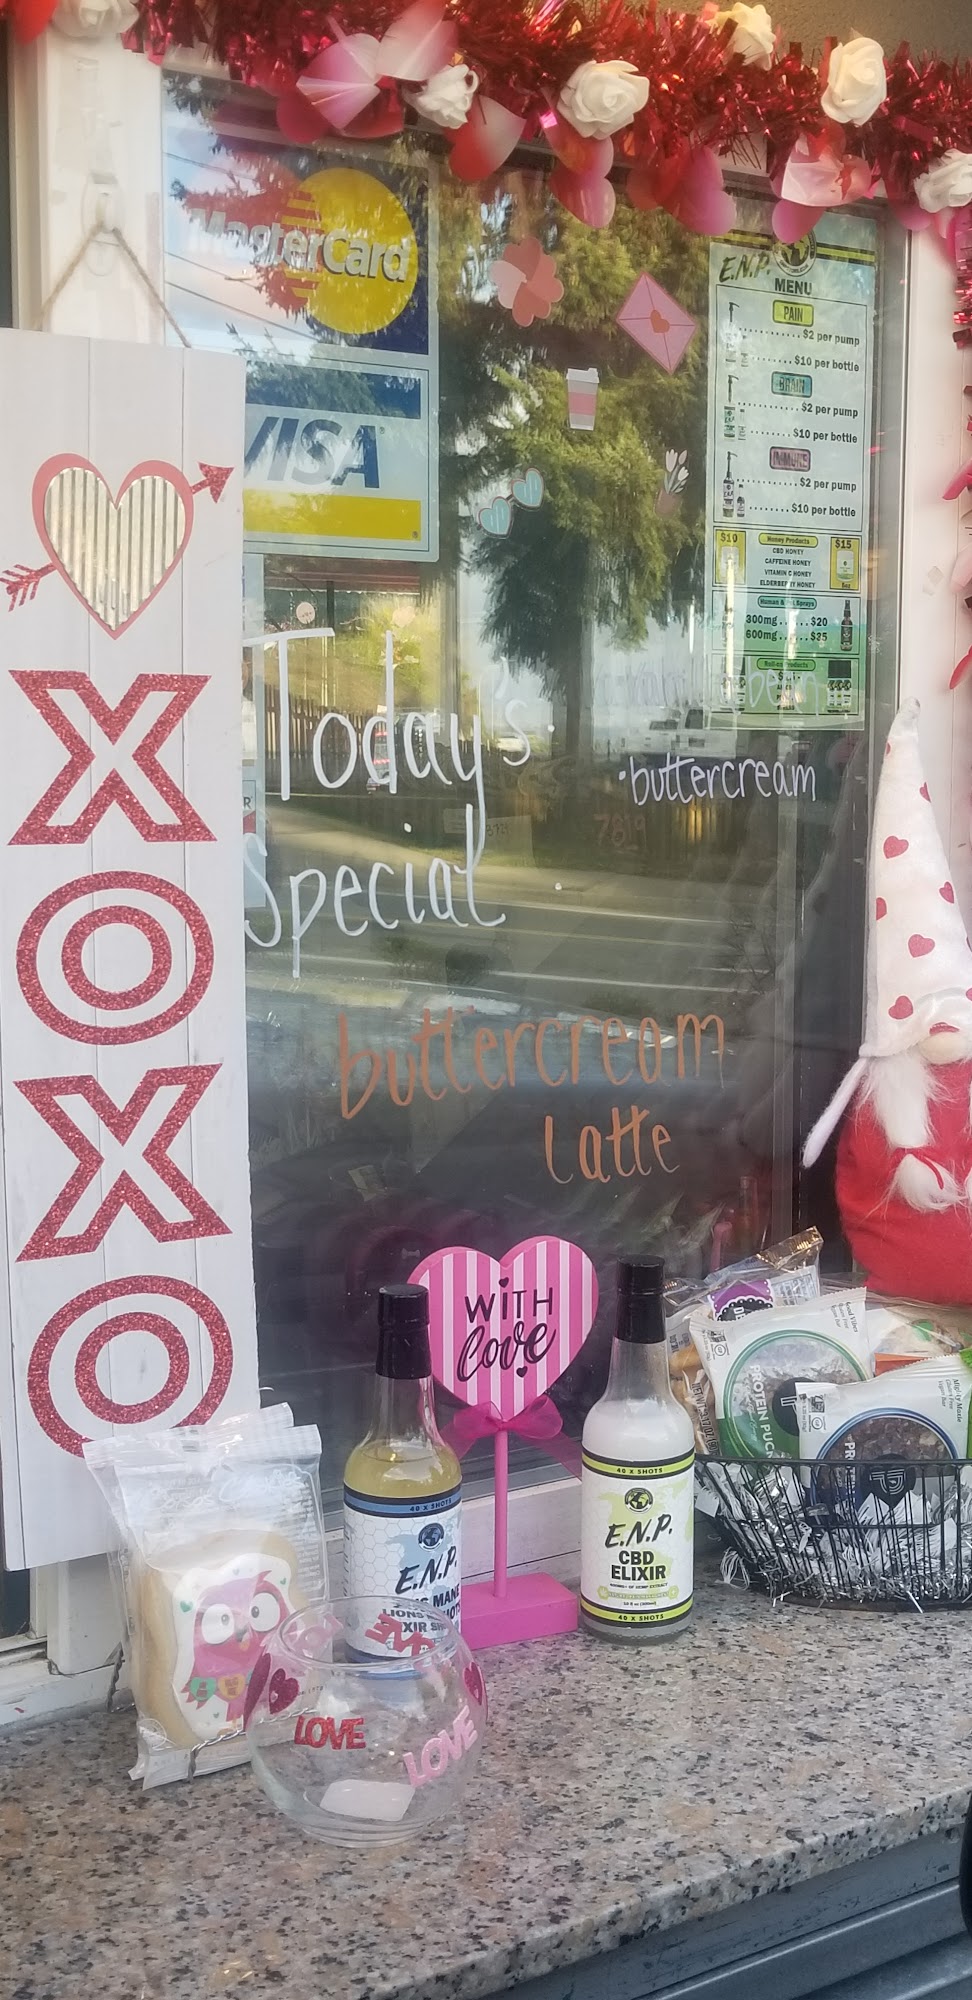 MasterCard
VISA
E.N.P.
MENU
PAIN
$2 per pump
$10 per bottle
BRAIN
$2 per pump
$10 per bottle
IMMUNE
$2 per pump
$10 per bottle
$10
Honey Products
$15
CBD HONEY
CAFFEINE HONEY
VITAMIN C HONEY
ELDERBERRY HONEY
Human & Pet Sprays
300mg......$20
600mg......$35
Roll-on Products
XOXO
Today's
Special
•buttercream
buttercream
Latte
WITH
love
40 X SHOTS
E.N.P.
LIONS
40 X SHOTS
E.N.P.
CBD
ELIXIR
40 X SHOTS
PROTEIN PUCK
LOVE
LOVE